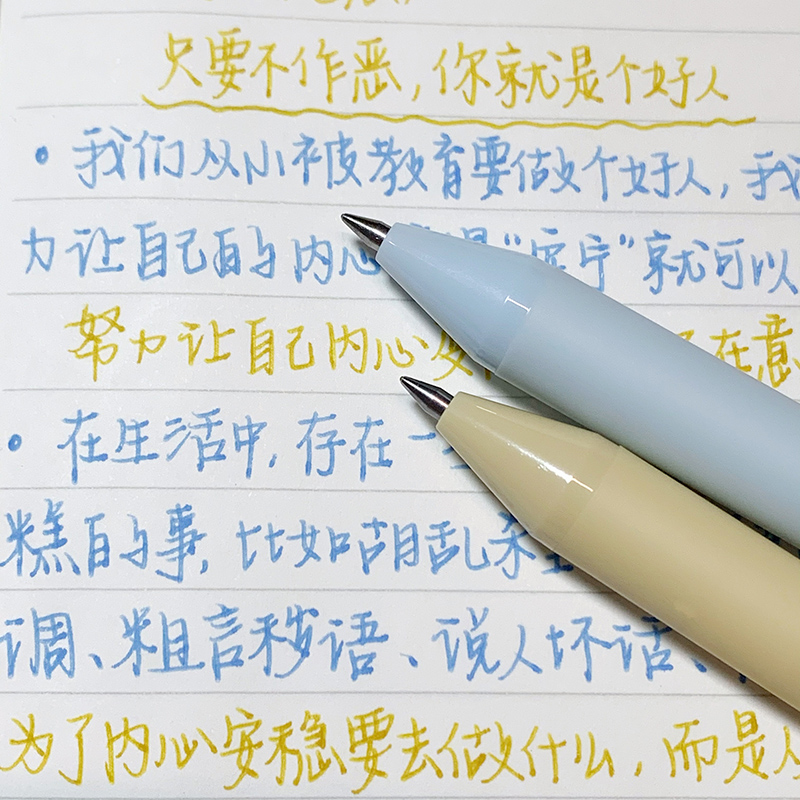 只要不作恶,你就是个好人
• 我们从小被教育要做个好人,我
力让自己的内心 "安宁"就可以
努力让自己内心安 在意
• 在生活中,存在一
糕的事,比如胡乱杀生
调、粗言秽语、说人坏话、
为了内心安稳要去做什么,而是从